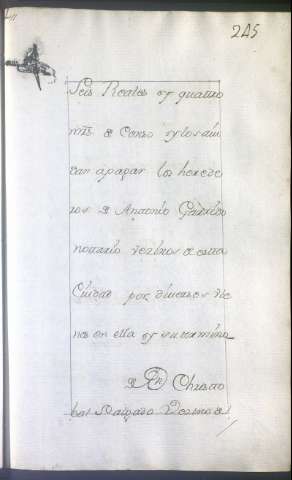 245
Seis Reales y quattro
mrs de Censo sylos diu
ean apagar los herede
ros de Antonio
notario vezinos de esta
Ciudad por diuersos vie
nes en ella y su termino
D. Christo
bal Vezino d